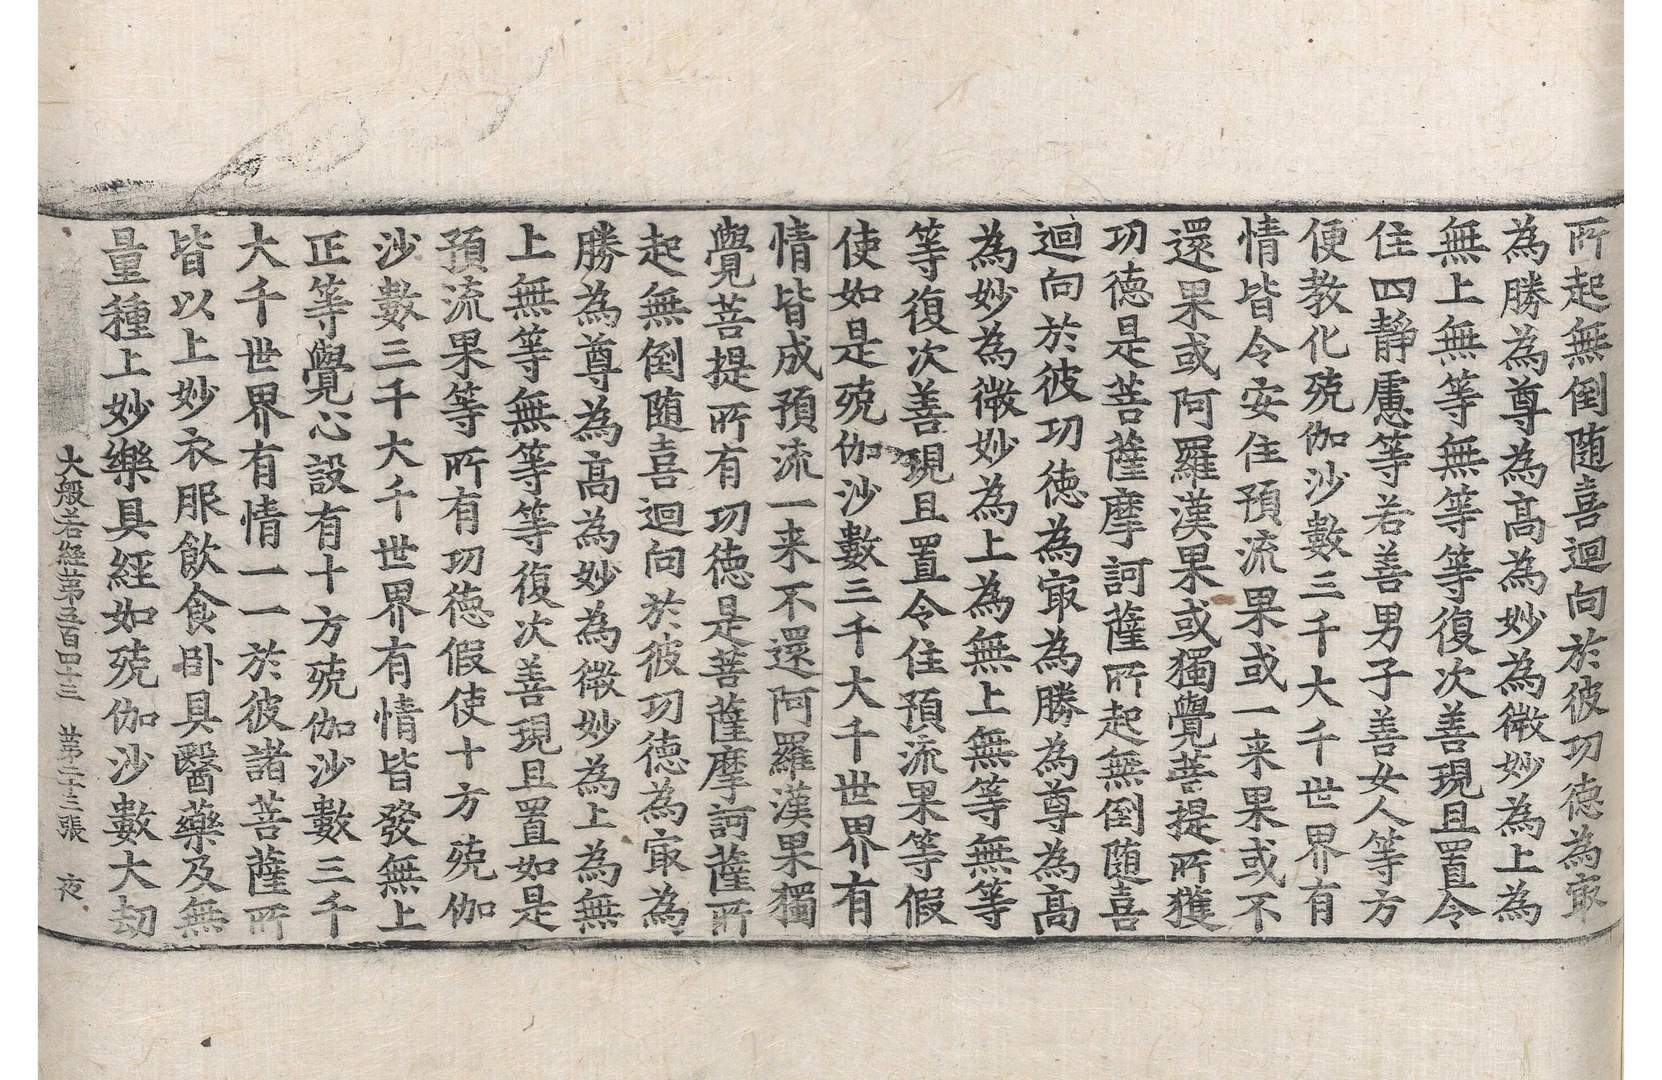 所起無倒随喜迴向於彼功德為㝡
為勝為尊為髙為妙為微妙為上為
無上無等無等等復次善現且置令
住四靜慮等若善男子善女人等方
便教化殑伽沙數三千大千世界有
情皆令安住預流果或一来果或不
還果或阿羅漢果或獨覺菩提所獲
功德是菩薩摩訶薩所起無倒随喜
迴向於彼功德為㝡為勝為尊為髙
為妙為微妙為上為無上無等無等
等復次善現且置令住預流果等假
使如是殑伽沙數三千大千世界有
情皆成預流一来不還阿羅漢果獨
覺菩提所有功德是菩薩摩訶薩所
起無倒随喜迴向於彼功德為㝡為
勝為尊為髙為妙為微妙為上為無
上無等無等等復次善現且置如是
預流果等所有功德假使十方殑伽
沙數三千大千世界有情皆發無上
正等覺心設有十方殑伽沙數三千
大千世界有情一一於彼諸菩薩所
皆以上妙衣服飲食卧具醫藥及無
量種上妙樂具經如殑伽沙數大劫
大般若經苐五百四十三　苐二十三張　夜